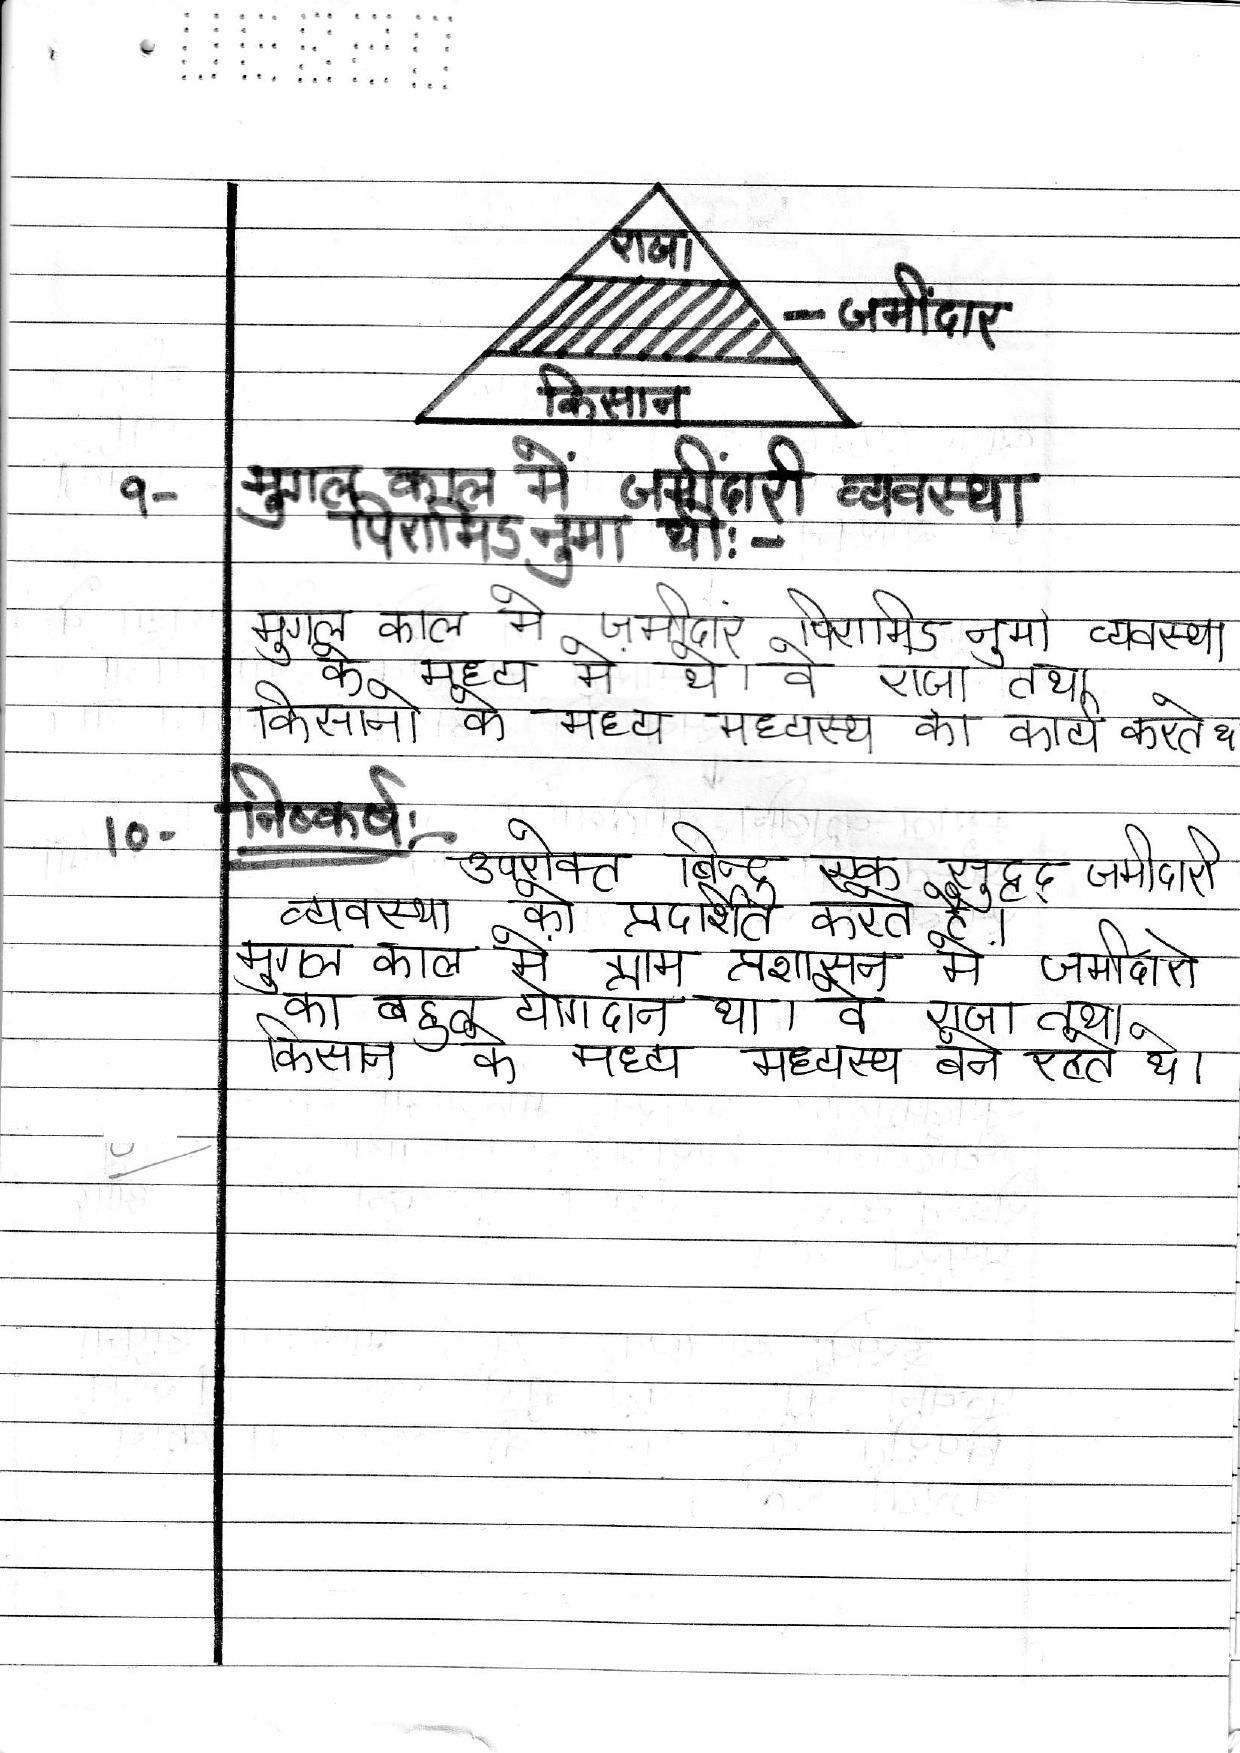 राजा
- जमींदार
किसान
9- मुगल काल में जमींदारी व्यवस्था
पिरामिड नुमा थी:-
मुगल काल मे ज़मीदार पिरामिड नुमा व्यवस्था
के मध्य मे थे। वे राजा तथा
किसानो के मध्य मध्यस्थ का कार्य करते थे
10- निष्कर्ष:-
उपरोक्त बिन्दु एक सुदृढ़ जमीदारी
व्यवस्था को प्रदर्शित करते है।
मुगल काल में ग्राम प्रशासन में जमीदारो
का बहुत योगदान था। वे राजा तथा
किसान के मध्य मध्यस्थ बने रहते थे।